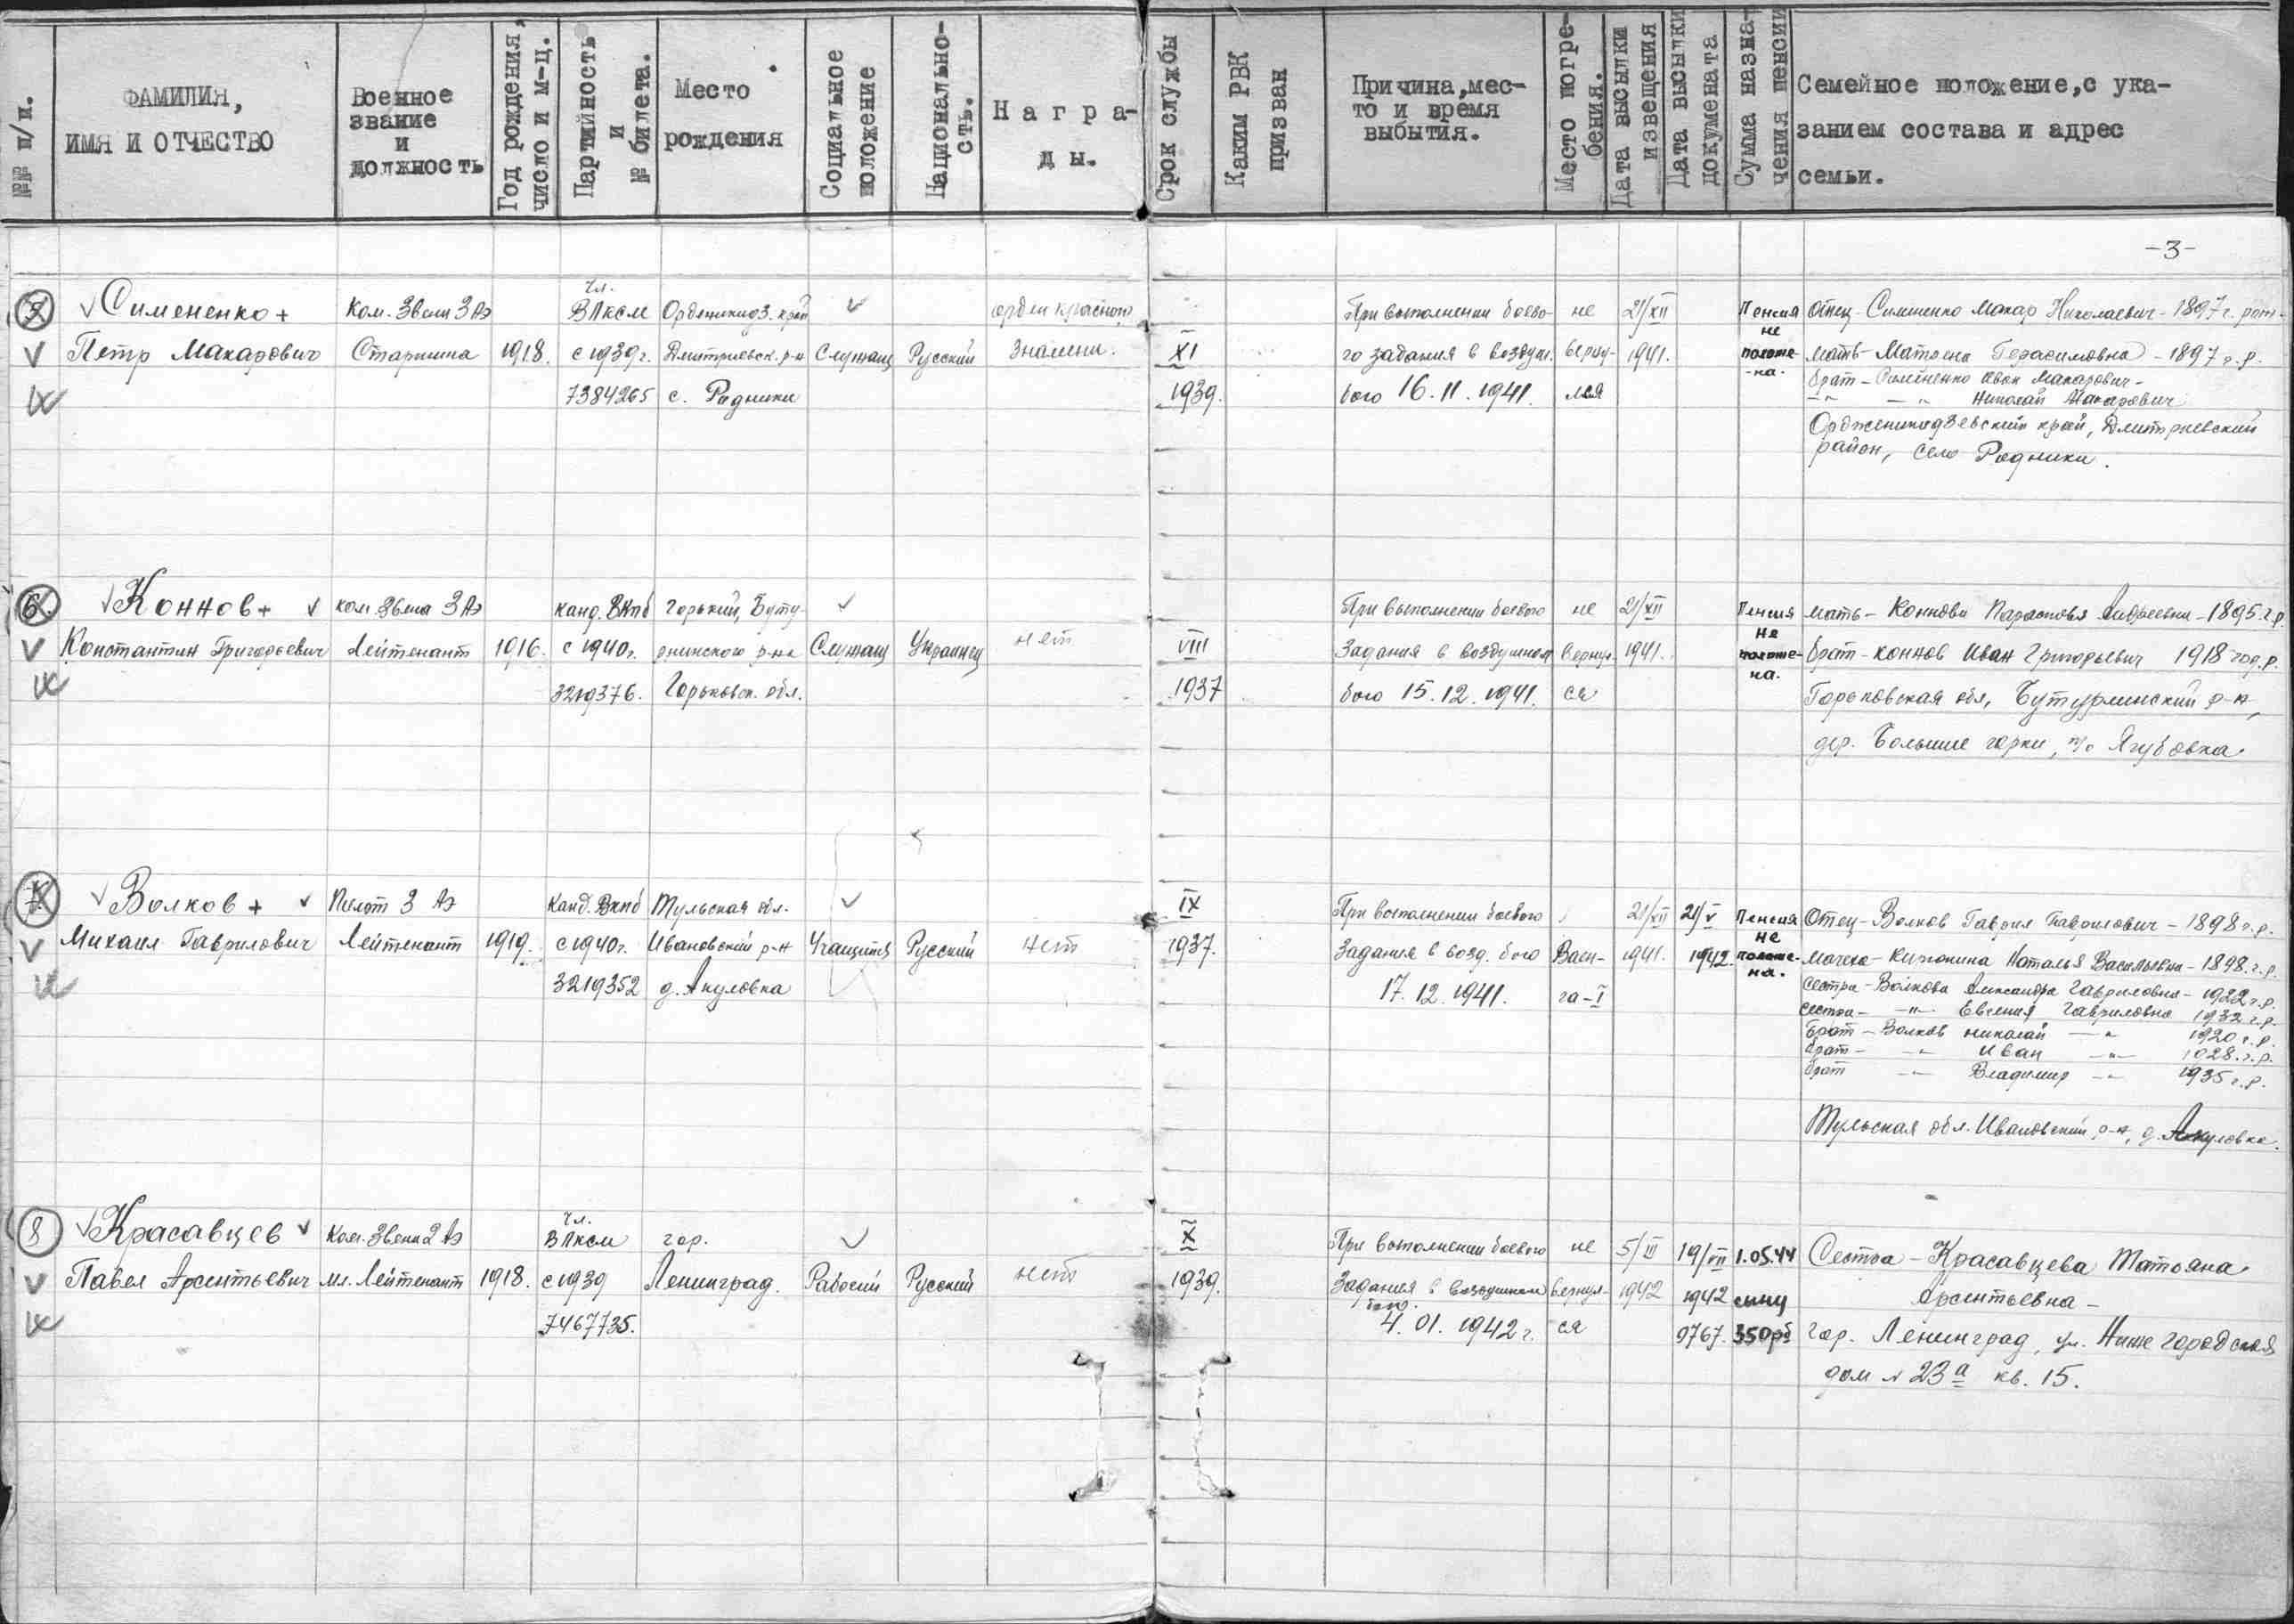 №№ п/п.
ФАМИЛИЯ,
ИМЯ И ОТЧЕСТВО
Военное
звание
и
должность
Год рождения,
число и м-ц.
Партийность
и
№ билета.
Место
рождения
Социальное
положение
Национально-
сть.
Награ-
ды.
Срок службы
Каким РВК
призван
Причина, мес-
то и время
выбытия.
Место погре-
бения.
Дата высылки
извещения
Дата высылки
документа
Сумма назна-
чения пенсии
Семейное положение, с ука-
занием состава и адрес
семьи.
-3-
5
Симененко +
Петр Макарович
Ком. Звена 3 Аэ
Старшина
1918.
Чл.
ВЛКСМ
с 1939 г.
7384265
Орджникидз. край
Дмитриевск. р-н
с. Родники
Служащ
Русский
орден красного
Знамени.
XI
1939.
При выполнении боево-
го задания в воздуш.
бою 16.11.1941.
не
верну-
лся
21/XII
1941.
Пенсия
не
положе-
на.
Отец - Симененко Макар Николаевич - 1897 г. рож.
Мать - Матрена Герасимовна - 1897 г.р.
брат - Симененко Иван Макарович -
-"- -"- Николай Макарович
Орджоникидзевский край, Дмитриевский
район, село Родники.
6.
Коннов +
Константин Григорьевич
ком. Звена 3 Аэ
Лейтенант
1916.
канд. ВКПб
с 1940 г.
3219376.
Горький, Буту-
рлинского р-на
Горьковск. обл.
Служащ
Украинец
нет
VIII
1937
При выполнении боевого
Задания в воздушном
бою 15.12.1941.
не
вернул-
ся
21/XII
1941.
Пенсия
не
положе-
на.
мать - Коннова Парасковья Андреевна - 1895 г.р.
брат - Коннов Иван Григорьевич 1918 год.р.
Горьковская обл, Бутурлинский р-н,
дер. Большие горки, п/о Ягубовка
7
Волков +
Михаил Гаврилович
Пилот 3 Аэ
Лейтенант
1919.
Канд. Вкпб
с 1940 г.
3219352
Тульская обл.
Ивановский р-н
д. Акуловка
Учащийся
Русский
нет
IX
1937.
При выполнении боевого
Задания в возд. бою
17.12.1941.
Ваен-
га-I
21/XII
1941.
21/V
1942.
Пенсия
не
положе-
на.
Отец - Волков Гаврил Гаврилович - 1898 г.р.
мачеха - Наталья Васильевна - 1898. г.р.
Сестра - Волкова Александра Гавриловна - 1922 г.р.
сестра - -"- Евгения Гавриловна 1932 г.р.
Брат - Волков николай -"- 1920 г.р.
брат - -"- Иван -"- 1928. г.р.
брат -"- Владимир -"- 1935 г.р.
Тульская обл. Ивановский р-н, д. Акуловка.
8
Красавцев
Павел Арсентьевич
Ком. Звена 2 Аэ
мл. Лейтенант
1918.
Чл.
ВЛКСМ
с 1939
7467735.
гор.
Ленинград.
Рабочий
Русский
нет
X
1939.
При выполнении боевого
Задания в воздушном
бою.
4.01.1942 г.
не
вернул-
ся
5/III
1942
19/VII
1942
9767.
1.05.44
сыну
350 рб
Сестра - Красавцева Татьяна
Арсентьевна -
гор. Ленинград, ул. Нижегородская
дом № 23а кв. 15.